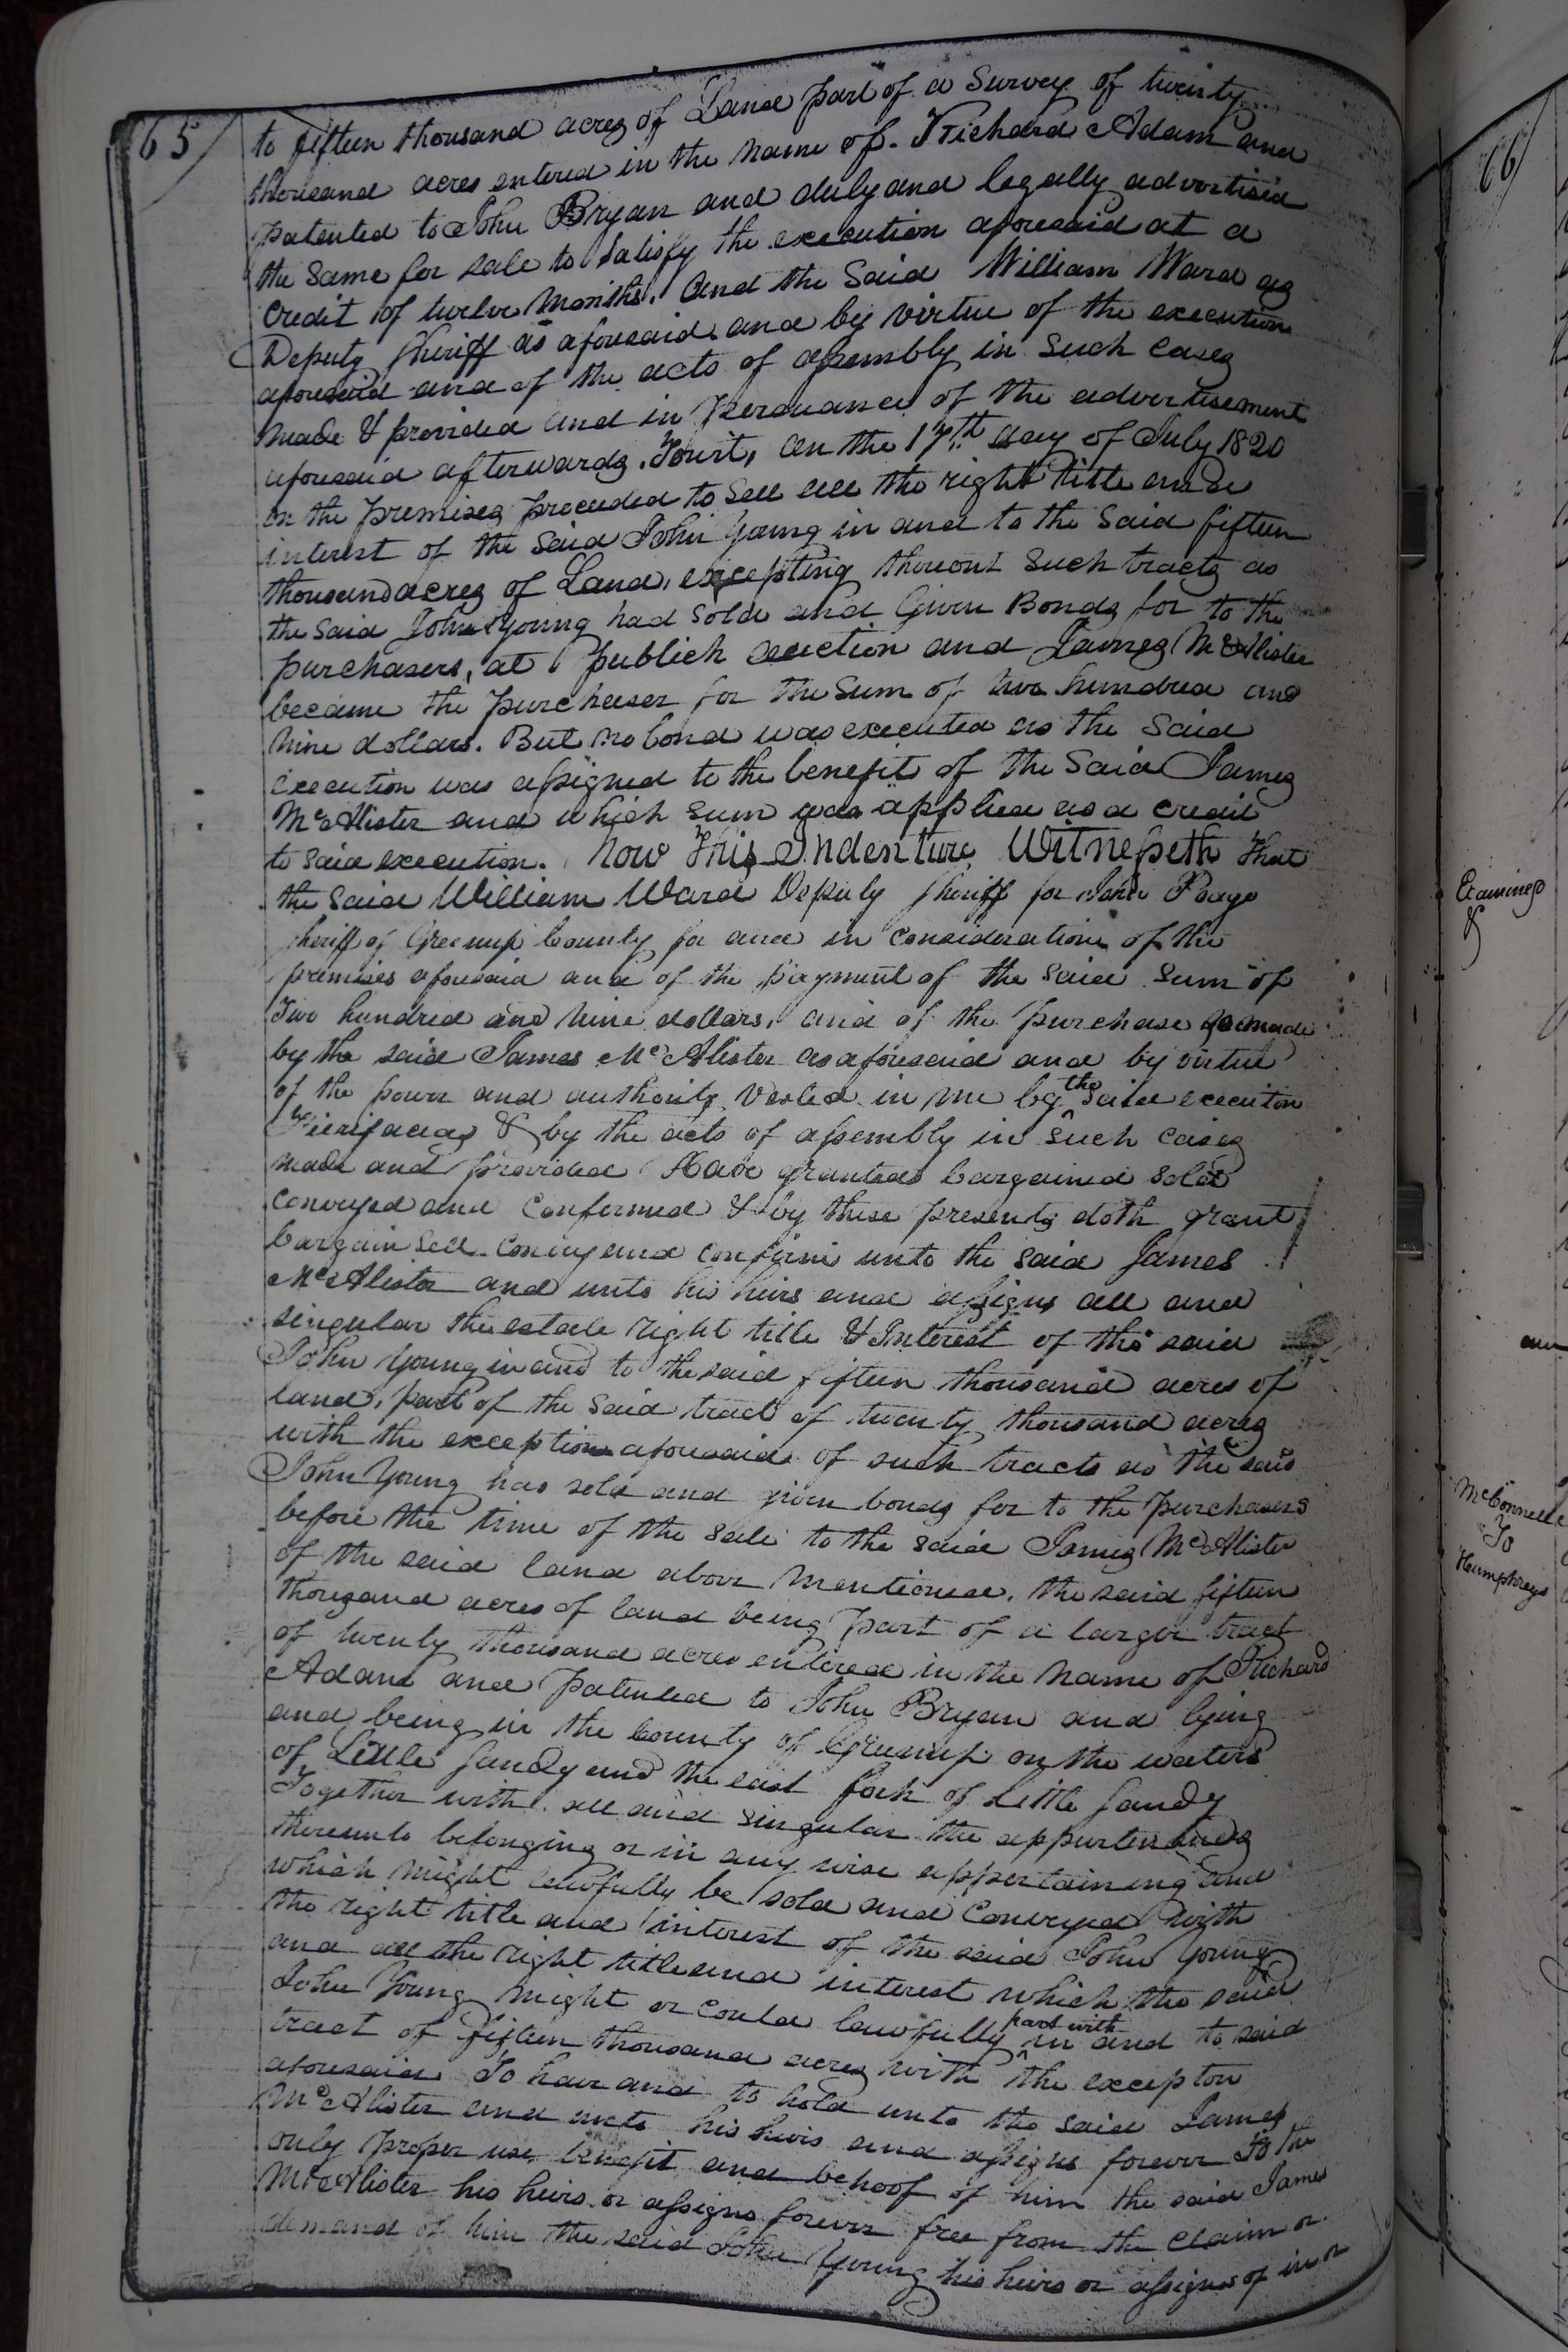 65
to fifteen thousand acres of Land part of a Survey of twenty
thousand acres entered in the name of. Richard Adam and
patented to John Bryan and duly and legally advertised
the same for sale to satisfy the execution aforesaid at a
credit of twelve months. And the Said William Ward as
Deputy Sheriff as aforesaid and by virtue of the execution
aforesaid and of the acts of assembly in such cases
made & provided and in persuance of the advertisement
aforesaid afterwards. Towit, on the 17th day of July 1820
on the premises proceeded to sell all the right title and
interest of the said John Young in and to the said fifteen
thousand acres of Land, excepting thereout such tracts as
the said John Young had sold and Given Bonds for to the
purchasers, at publick auction and James McAlister
became the purchaser for the sum of two hundred and
nine dollars. But no bond was executed as the said
execution was assigned to the benefit of the said James
McAlister and which sum was applied as a credit
to said execution. Now This Indenture Witnesseth that
the said William Ward Deputy Sheriff for John Poage
sheriff of Greenup County for and in consideration of the
premises aforesaid and of the payment of the said sum of
Two hundred and nine dollars, and of the purchase so made
by the said James McAlister as aforesaid and by virtue
of the power and authority vested in me by the said execution
Fierifacias & by the acts of assembly in such cases
made and provided Have granted bargained sold
conveyed and confirmed & by these presents doth grant
bargain sell convey and confirm unto the said James
McAlister and unto his heirs and assigns all and
singular the estate right title & Interest of the said
John Young in and to the said fifteen thousand acres of
land, part of the said tract of twenty thousand acres
with the exception aforesaid of such tracts as the said
John Young has sold and given bonds for to the purchasers
before the time of the sale to the said James McAlister
of the said land above mentioned. the said fifteen
thousand acres of land being part of a larger tract
of twenty thousand acres entered in the name of Richard
Adams and patented to John Bryan and lying
and being in the County of Greenup on the waters
of Little Sandy and the east fork of Little Sandy
Together with all and singular the appurtenances
thereunto belonging or in any wise appertaining and
which might lawfully be sold and conveyed with
the right title and interest of the said John Young
and all the right title and interest which the said
John Young might or could lawfully part with in and to said
tract of fifteen thousand acres with the exception
aforesaid. To have and to hold unto the said James
McAlister and unto his heirs and assigns forever To the
only proper use, benefit and behoof of him the said James
McAlister his heirs or assigns forever free from the claim or
demand of him the said John Young his heirs or assigns of in or
66
Examined
&
McConnell
To
Humphreys